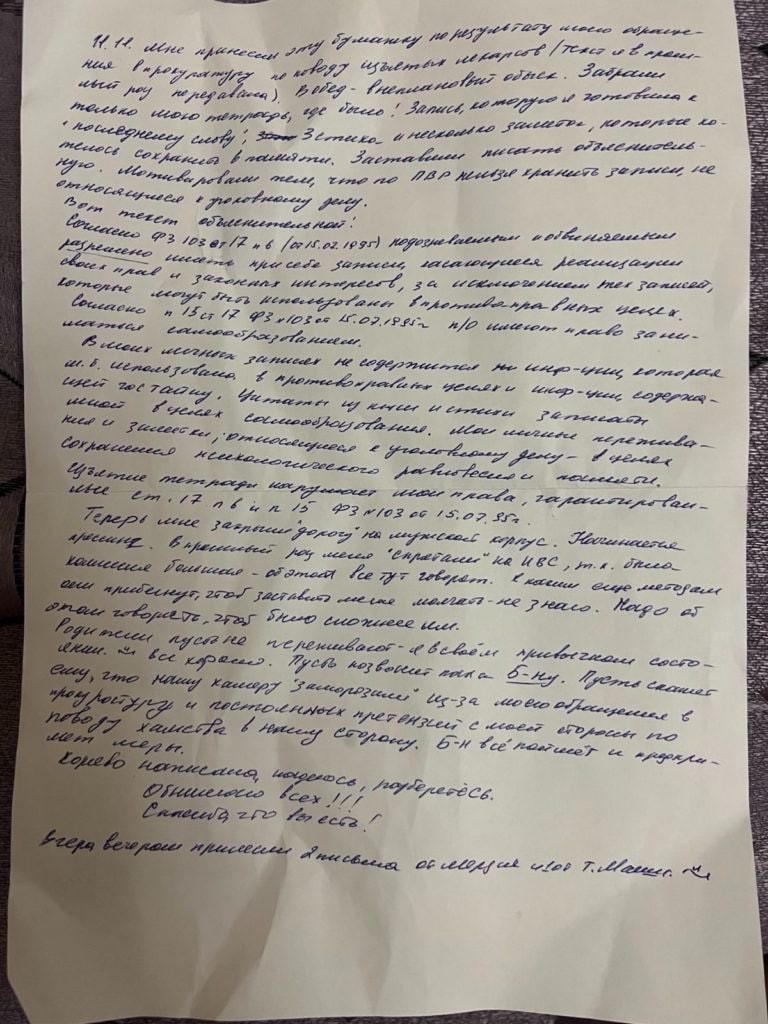 11.11. Мне принесли эту бумажку по результату моего обраще-
ния в прокуратуру по поводу изъятых лекарств (текст я в прош-
лый раз передавала). В обед - внеплановый обыск. Забрали
только мою тетрадь, где было: Запись, которую я готовила к
"последнему слову", 3 стиха и несколько заметок, которые хо-
телось сохранить в памяти. Заставили писать объяснитель-
ную. Мотивировали тем, что по ПВР нельзя хранить записи, не
относящиеся к уголовному делу.
Вот текст объяснительной:
Согласно ФЗ 103 ст 17 п 6 (от 15.07.1995) подозреваемым и обвиняемым
разрешено иметь при себе записи, касающиеся реализации
своих прав и законных интересов, за исключением тех записей,
которые могут быть использованы в противоправных целях.
Согласно п 15 ст 17 ФЗ №103 от 15.07.1995г п/о имеют право зани-
маться самообразованием.
В моих личных записях не содержится ни инф-ции, которая
м.б. использована в противоправных целях и инф-ции, содержа-
щей гостайну. Цитаты из книг и стихи записаты
мной в целях самообразования. Мои личные пережива-
ния и заметки, относящиеся к уголовному делу - в целях
сохранения психологического равновесия и памяти.
Изъятие тетради нарушает мои права, гарантирован-
ные ст. 17 п 6 и п 15 ФЗ №103 от 15.07.95г.
Теперь мне закрыли "дорогу" на мужской корпус. Начинается
прессинг. В прошлый раз меня "спрятали" на ИВС, т.к. была
комиссия большая - об этом все тут говорят. К каким еще методам
они прибегнут, чтоб заставить меня молчать - не знаю. Надо об
этом говорить, чтоб было сложнее им.
Родители пусть не переживают - я в своём привычном состо-
янии. Всё хорошо. Пусть позвонит Б-ну. Пусть скажет
ему, что нашу камеру "заморозили" из-за моего обращения в
прокуратуру и постоянных претензий с моей стороны по
поводу хамства в нашу сторону. Б-н всё поймёт и предпри-
мет меры.
Коряво написала, надеюсь, разберётесь.
Обнимаю всех!!!
Спасибо, что вы есть!
Вчера вечером принесли 2 письма от и 1 от Т. Маши.